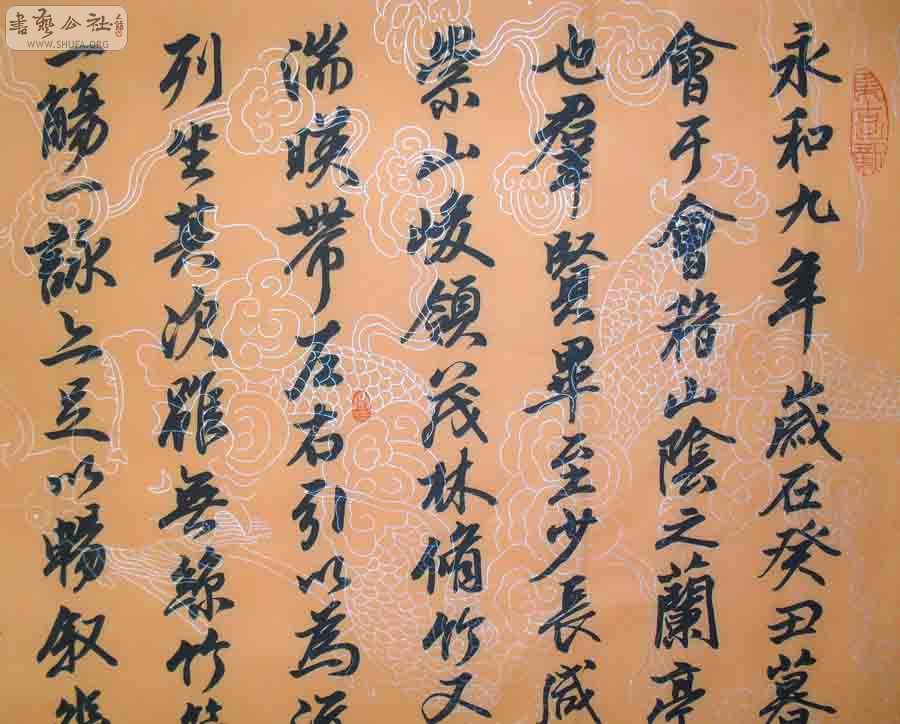 永和九年歲在癸丑暮
會于會稽山陰之蘭亭
也羣賢畢至少長咸
崇山峻領茂林脩竹又
湍暎帶左右引以為流
列坐其次雖無絲竹管
一觴一詠亦足以暢叙幽
書藝公社
WWW.SHUFA.ORG